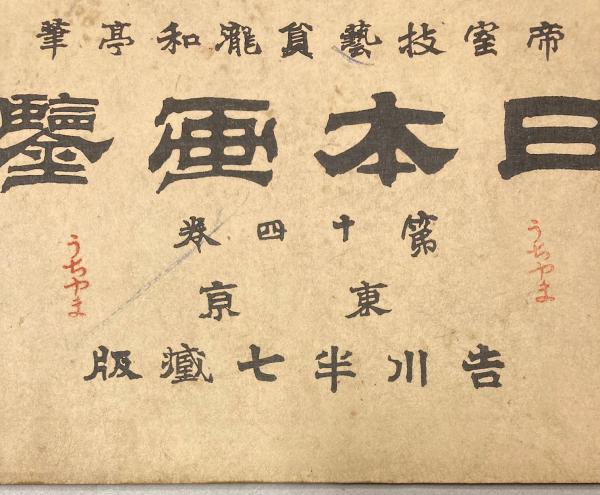 帝室技藝員瀧和亭筆
日本画鑒
第十四卷
東京
吉川半七藏版
うちやま
うちやま